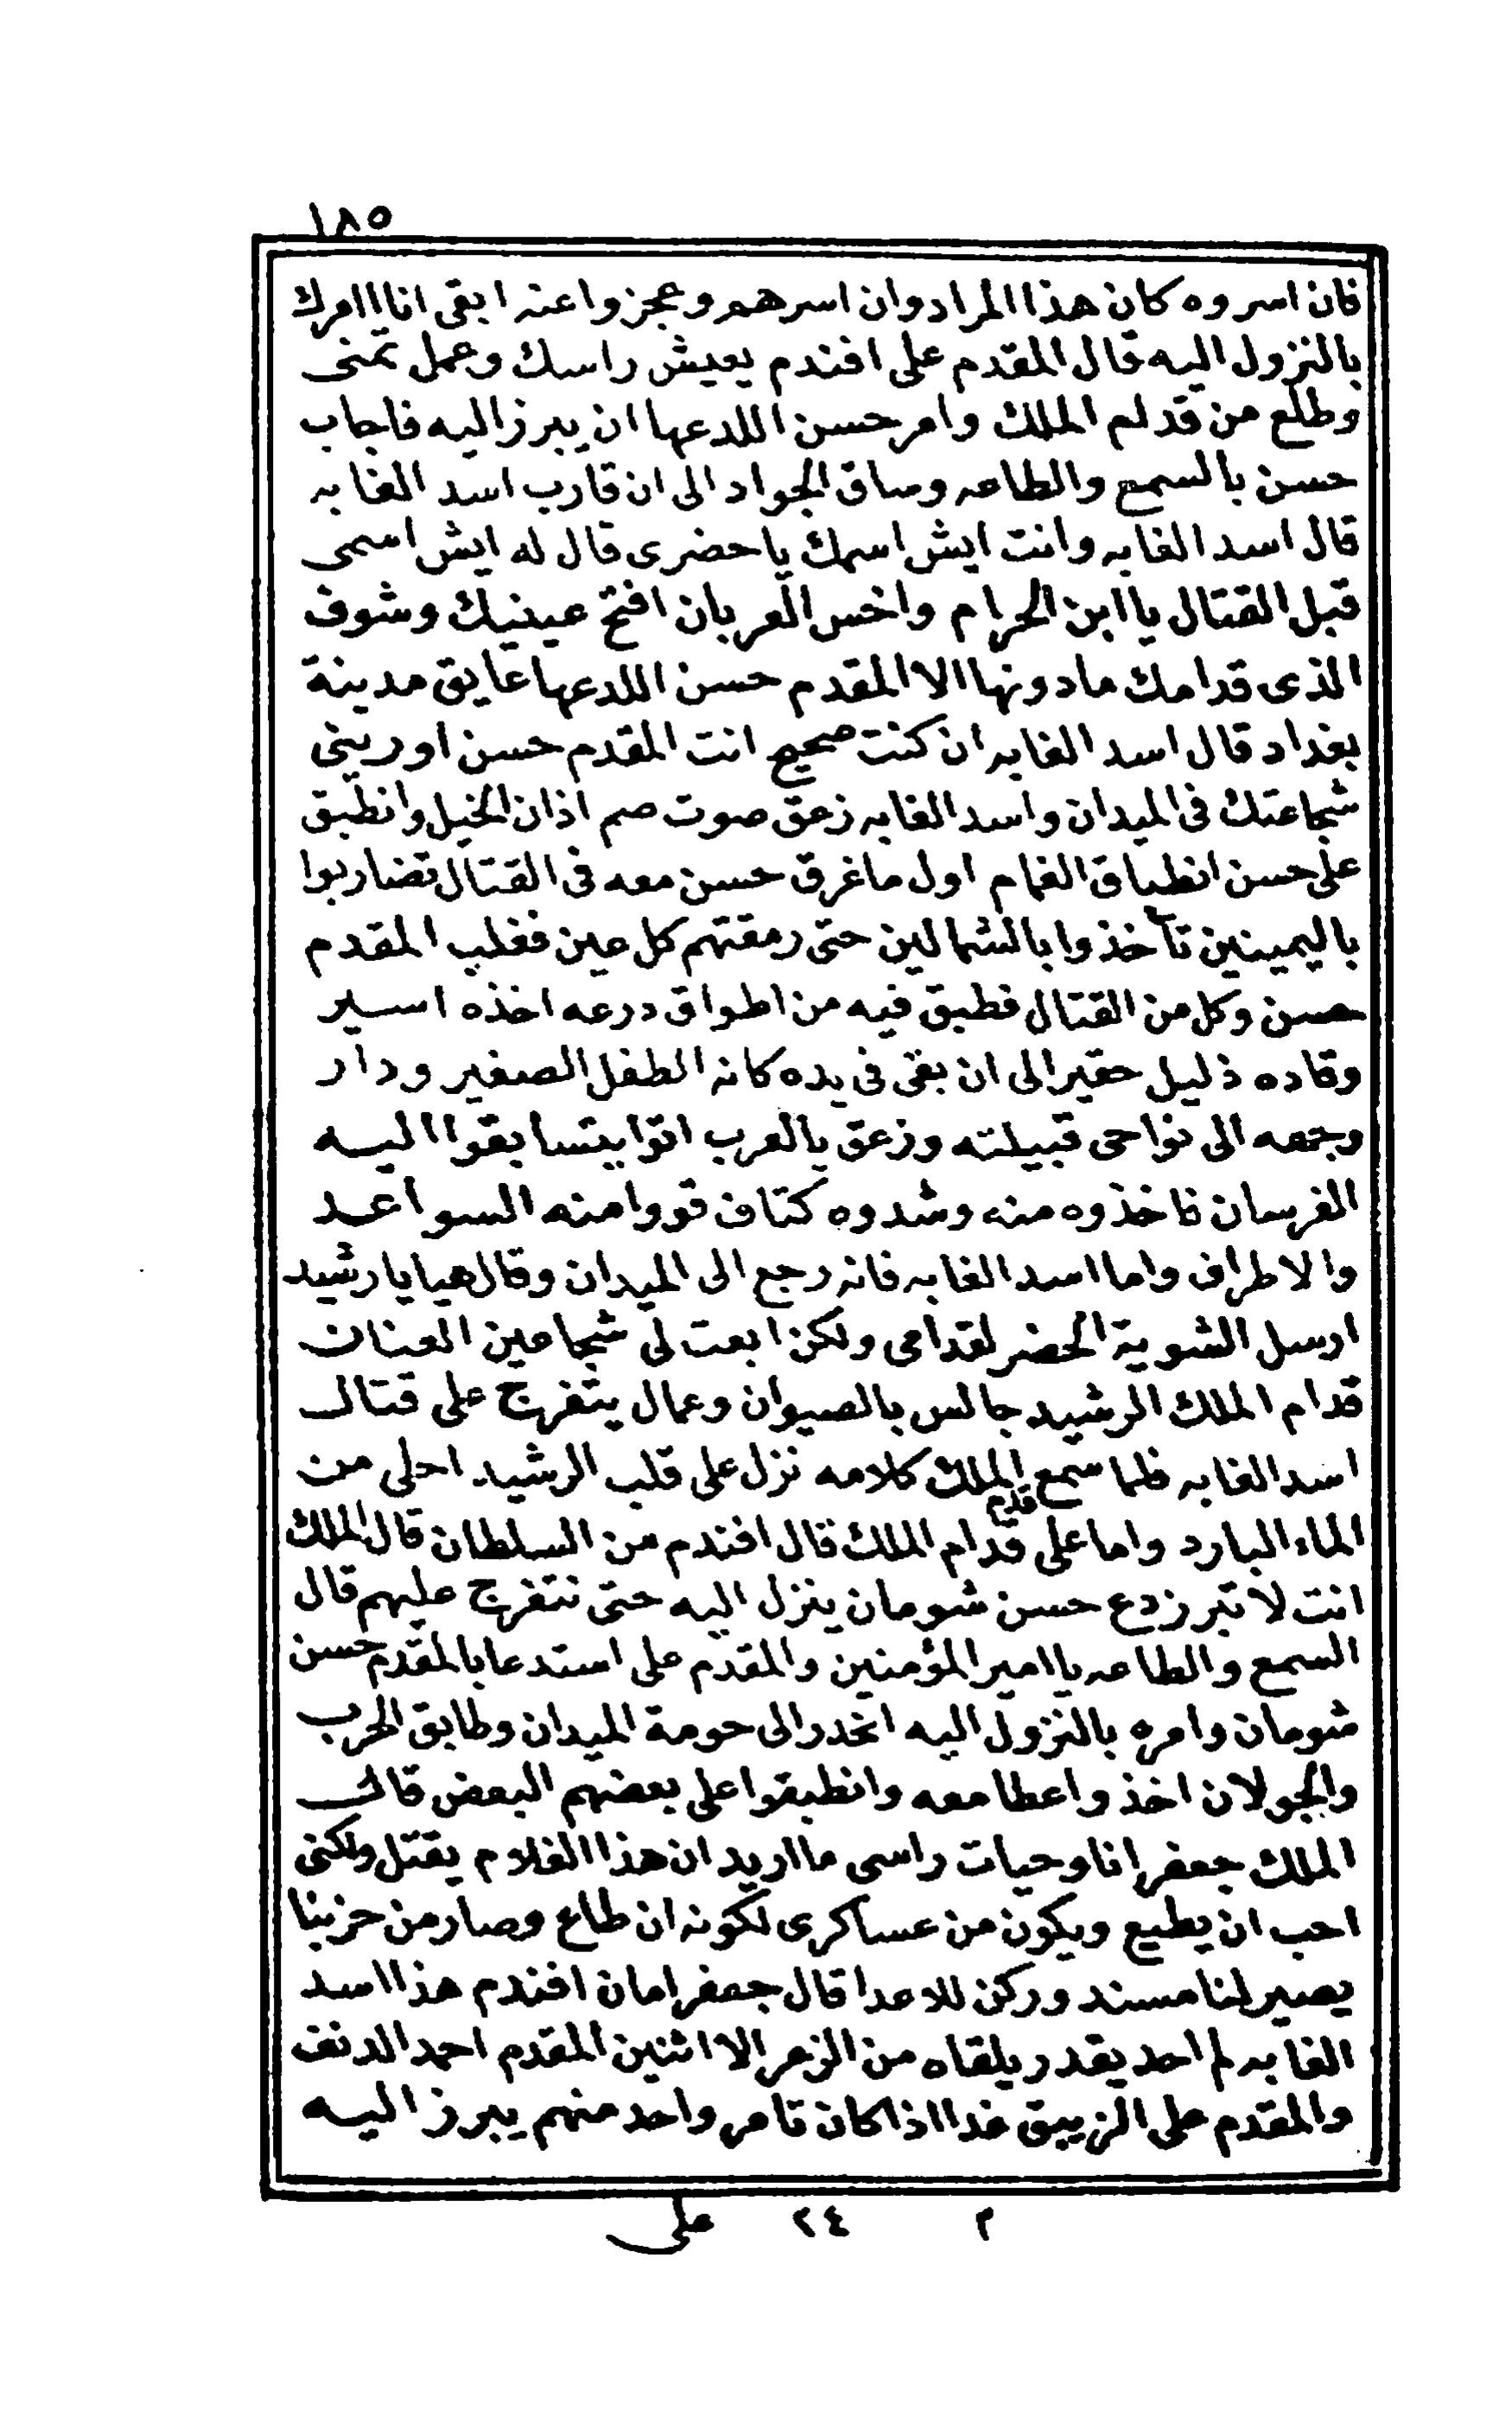 ١٨٥
فان اسروه كان هذا المراد وان اسرهم وعجزوا عنه ابقى انا اامرك
بالنزول اليه قال المقدم على افندم يعيش راسك وعمل تمنى
وطلع من قدام الملك وامر حسن اللدعها ان يبرز اليه فاجاب
حسن بالسمع والطاعه وساق الجواد الى ان قارب اسد الغابه
قال اسد الغابه وانت ايش اسمك يا حضرى قال له ايش اسمى
قبل القتال يا ابن الحرام واخس العربان افتح عينيك وشوف
الذى قدامك مادونها الا المقدم حسن اللدعها عايق مدينة
بغداد قال اسد الغابه ان كنت صحيح انت المقدم حسن اورينى
شجاعتك فى الميدان واسد الغابه زعق صوت صم اذان الخيل وانطبق
على حسن انطباق الغمام اول ماغرق حسن معه فى القتال تضاربوا
باليمينين تأخذوا بالشمالين حتى رمقتهم كل عين فغلب المقدم
حسن وكل من القتال فطبق فيه من اطواق درعه اخذه اسير
وقاده ذليل حقير الى ان بقى فى يده كانه الطفل الصغير ودار
وجهه الى نواحى قبيلته وزعق بالعرب اتوا يتسابقوا اليه
الفرسان فاخذوه منه وشدوه كتاف قووا منه السواعد
والاطراف واما اسد الغابه فانه رجع الى الميدان وقال هيا يا رشيد
ارسل الشوية الحضر لقدامى ولكن ابعت لى شجاعين العنان
قدام الملك الرشيد جالس بالصيوان وعمال يتفرج على قتال
اسد الغابه فلما سمع الملك كلامه نزل على قلب الرشيد احلى من
الماء البارد واما على قدم قدام الملك قال افندم من السلطان قال الملك
انت لا تبرز دع حسن شومان ينزل اليه حتى نتفرج عليهم قال
السمع والطاعه يا امير المؤمنين والمقدم على استدعا بالمقدم حسن
شومان وامره بالنزول اليه انحدر الى حومة الميدان وطابق الحرب
والجولان اخذ واعطا معه وانطبقوا على بعضهم البعض قال
الملك جعفر انا وحيات راسى ما اريد ان هذا الغلام يقتل ولكنى
احب ان يطيع ويكون من عساكرى لكونه ان طاع وصار من حزبنا
يصير لنا مسند وركن للاعدا قال جعفر امان افندم هذا اسد
الغابه لم احد يقدر يلقاه من الزعر الا اثنين المقدم احمد الدنف
والمقدم على الزيبق غدا اذا كان تامر واحد منهم يبرز اليه
م ٢٤ على